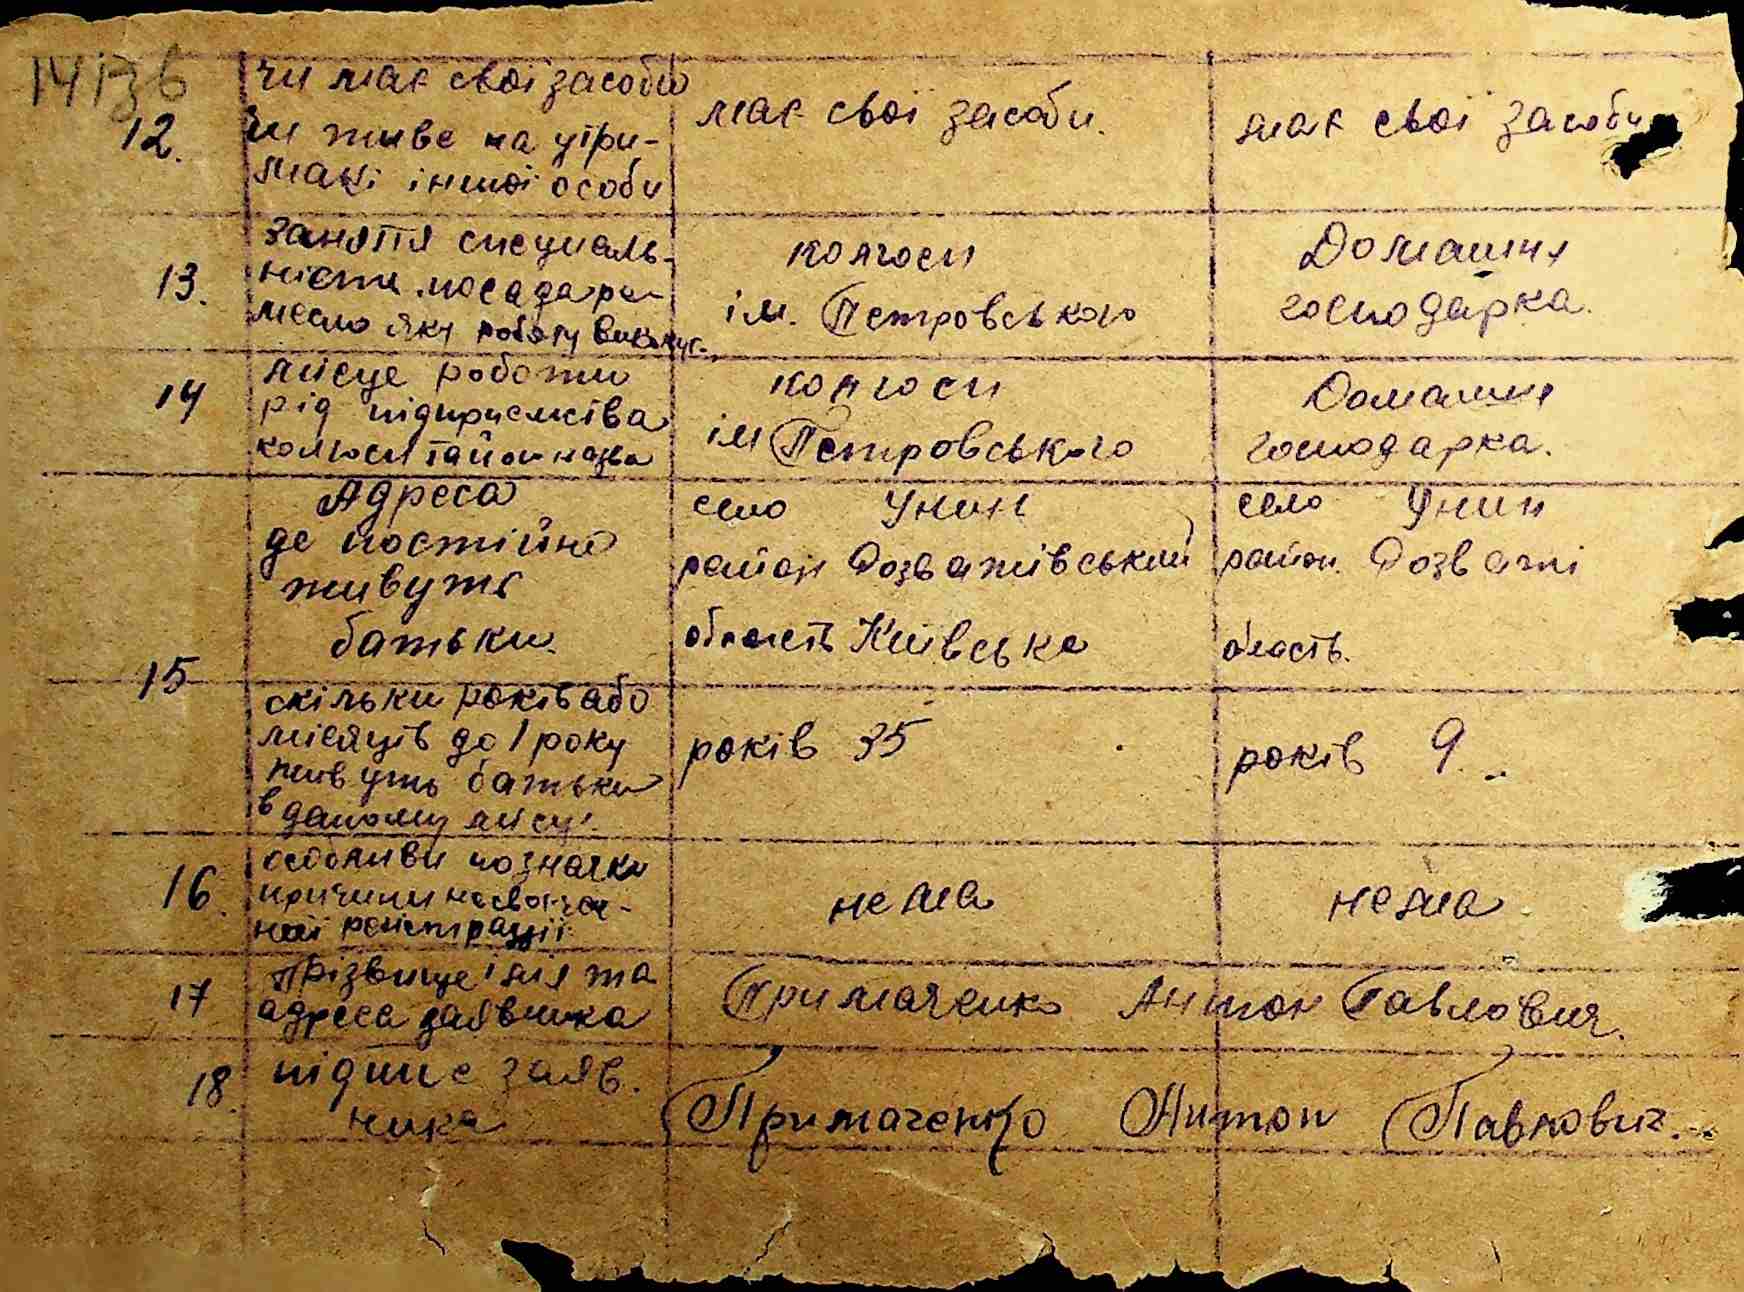 14 зв
12.
чи має свої засоби
чи живе на утри-
манні іншої особи
має свої засоби.
має свої засоби
13.
заняття специаль-
ність посада ре-
месло яку роботу виконує
колгосп
ім. Петровського
Домашня
господарка.
14
місце роботи
рід підприємства
колгосп та його назва
колгосп
ім Петровського
Домашня
господарка.
15
Адреса
де постійно
живуть
батьки.
село Унин
район Розважівський
область Київська
село Унин
район. Розважі
область.
скільки років або
місяців до 1 року
живуть батьки
в даному місці.
років 35
років 9
16.
особливи позначки
причини несвоєчас-
ної регістрації
нема
нема
17
Прізвище імя та
адреса заявника
Примаченко Антон Павлович.
18.
підпис заяв.
ника
Примаченко Антон Павлович.